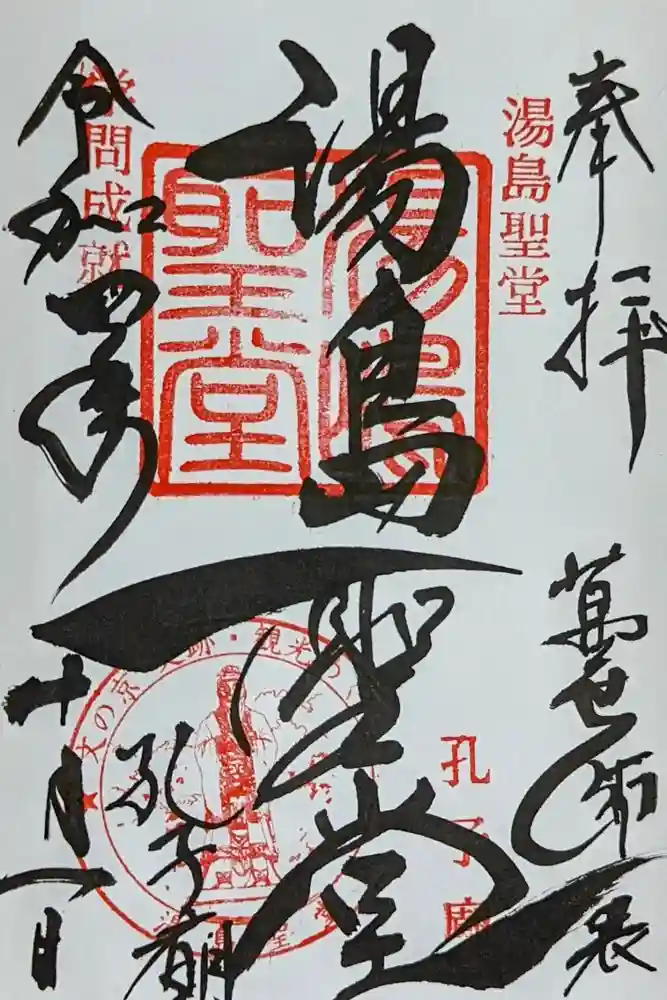 奉拝
萬世師表
湯島聖堂
湯島聖堂
湯島聖堂
孔子廟
孔子廟
学問成就
令和四年
十月一日
湯島聖堂